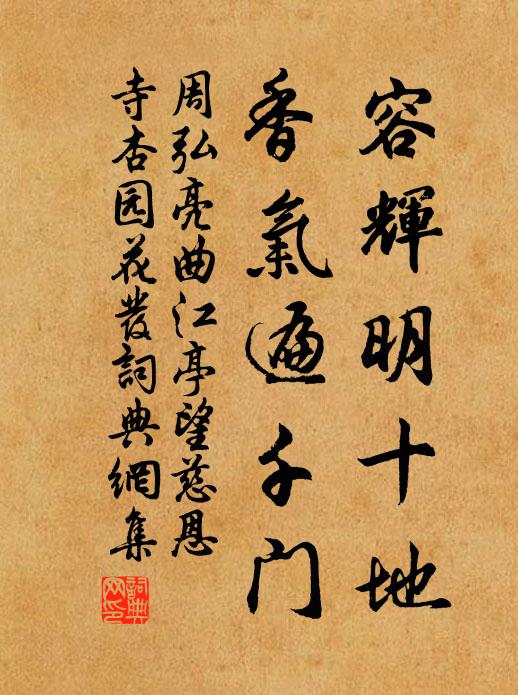 容輝明十地
香氣遍千门
周弘亮曲江亭望慈恩
寺杏园花發詞典網集
詞典网印